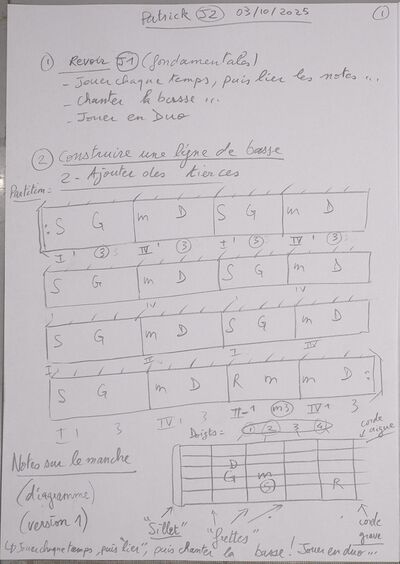 Patrick J2 03/10/2025 1
① Revoir J1 (fondamentales)
- Jouer chaque temps, puis lier les notes ...
- Chanter la basse ...
- Jouer en Duo
② Construire une ligne de basse
2 - Ajouter des tierces
Partition:
S G m D S G m D
I 1 3 IV 1 3 I 1 3 IV 1 3
S G m D S G m D
IV IV
S G m D S G m D
I II I IV
S G m D R m m D :
I 1 3 IV 1 3 II-1 m3 IV 1 3
Doigts= 1 2 3 4 corde aigue
Notes sur le manche
(diagramme)
(version 1)
D
G m
S R
"Sillet" "frettes" corde grave
↳ Jouer chaque temps, puis "lier", puis chanter la basse ! Jouer en duo ...